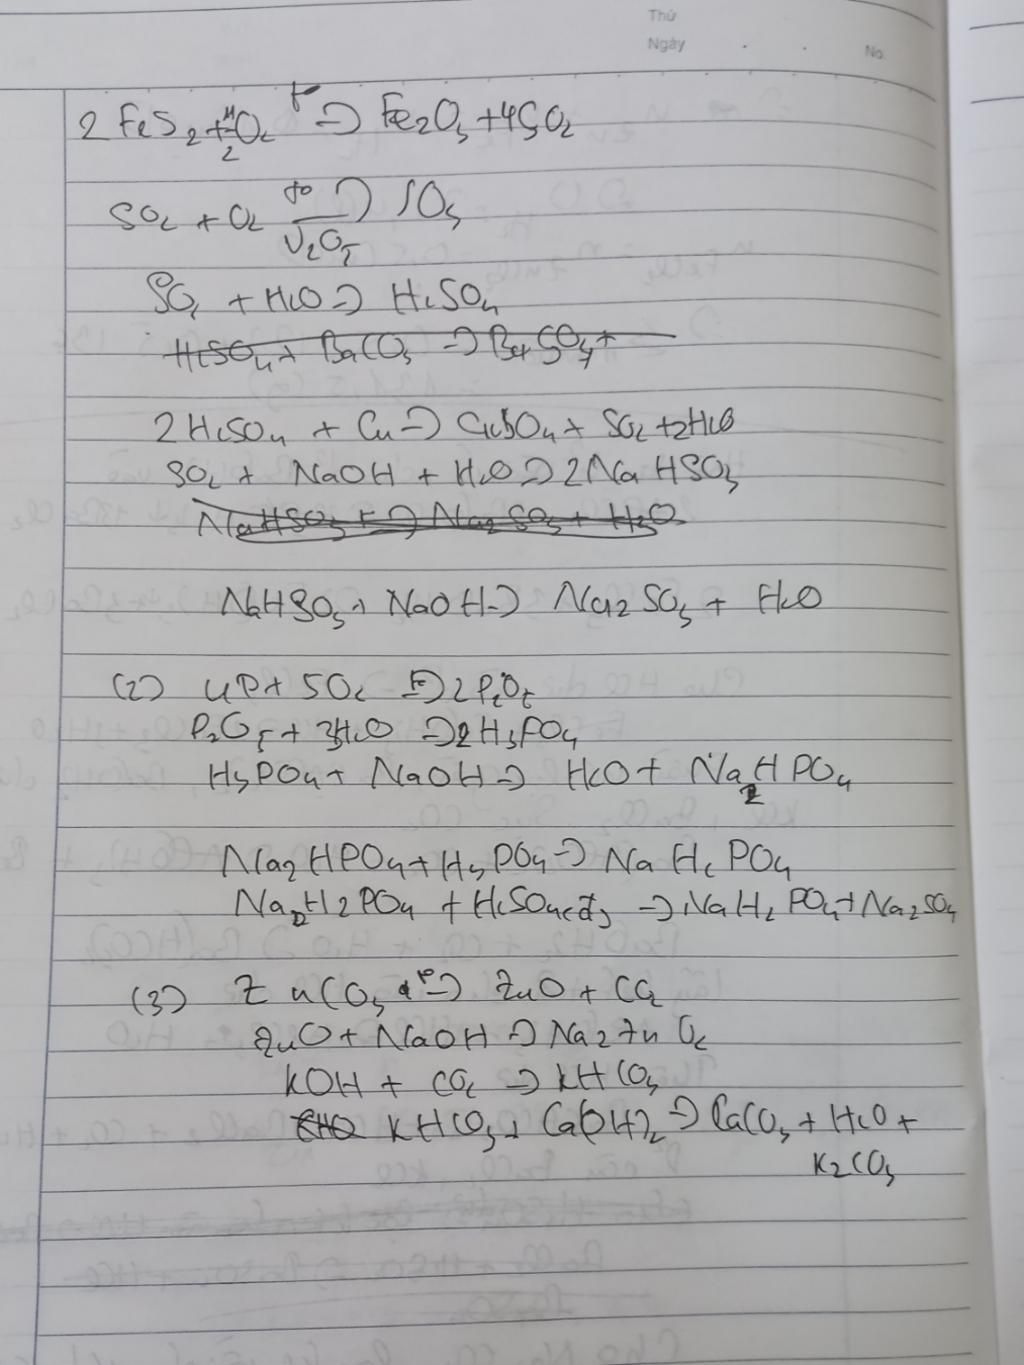 Thứ
Ngày . . No.
2 FeS2 + 11/2 O2 t° → Fe2O3 + 4SO2
SO2 + O2 t° → SO3
V2O5
SO3 + H2O → H2SO4
H2SO4 + BaCO3 → BaSO4 +
2H2SO4 + Cu → CuSO4 + SO2 + 2H2O
SO2 + NaOH + H2O → 2NaHSO3
NaHSO3 + → Na2SO3 + H2O
NaHSO3 + NaOH → Na2SO3 + H2O
(2) 4P + 5O2 → 2P2O5
P2O5 + 3H2O → 2H3PO4
H3PO4 + NaOH → H2O + Na2HPO4
Na2HPO4 + H3PO4 → NaH2PO4
Na2H2PO4 + H2SO4(đ) → NaH2PO4 + Na2SO4
(3) ZnCO3 t° → ZnO + CO2
ZnO + NaOH → Na2ZnO2
KOH + CO2 → KHCO3
KHCO3 + Ca(OH)2 → CaCO3 + H2O +
K2CO3